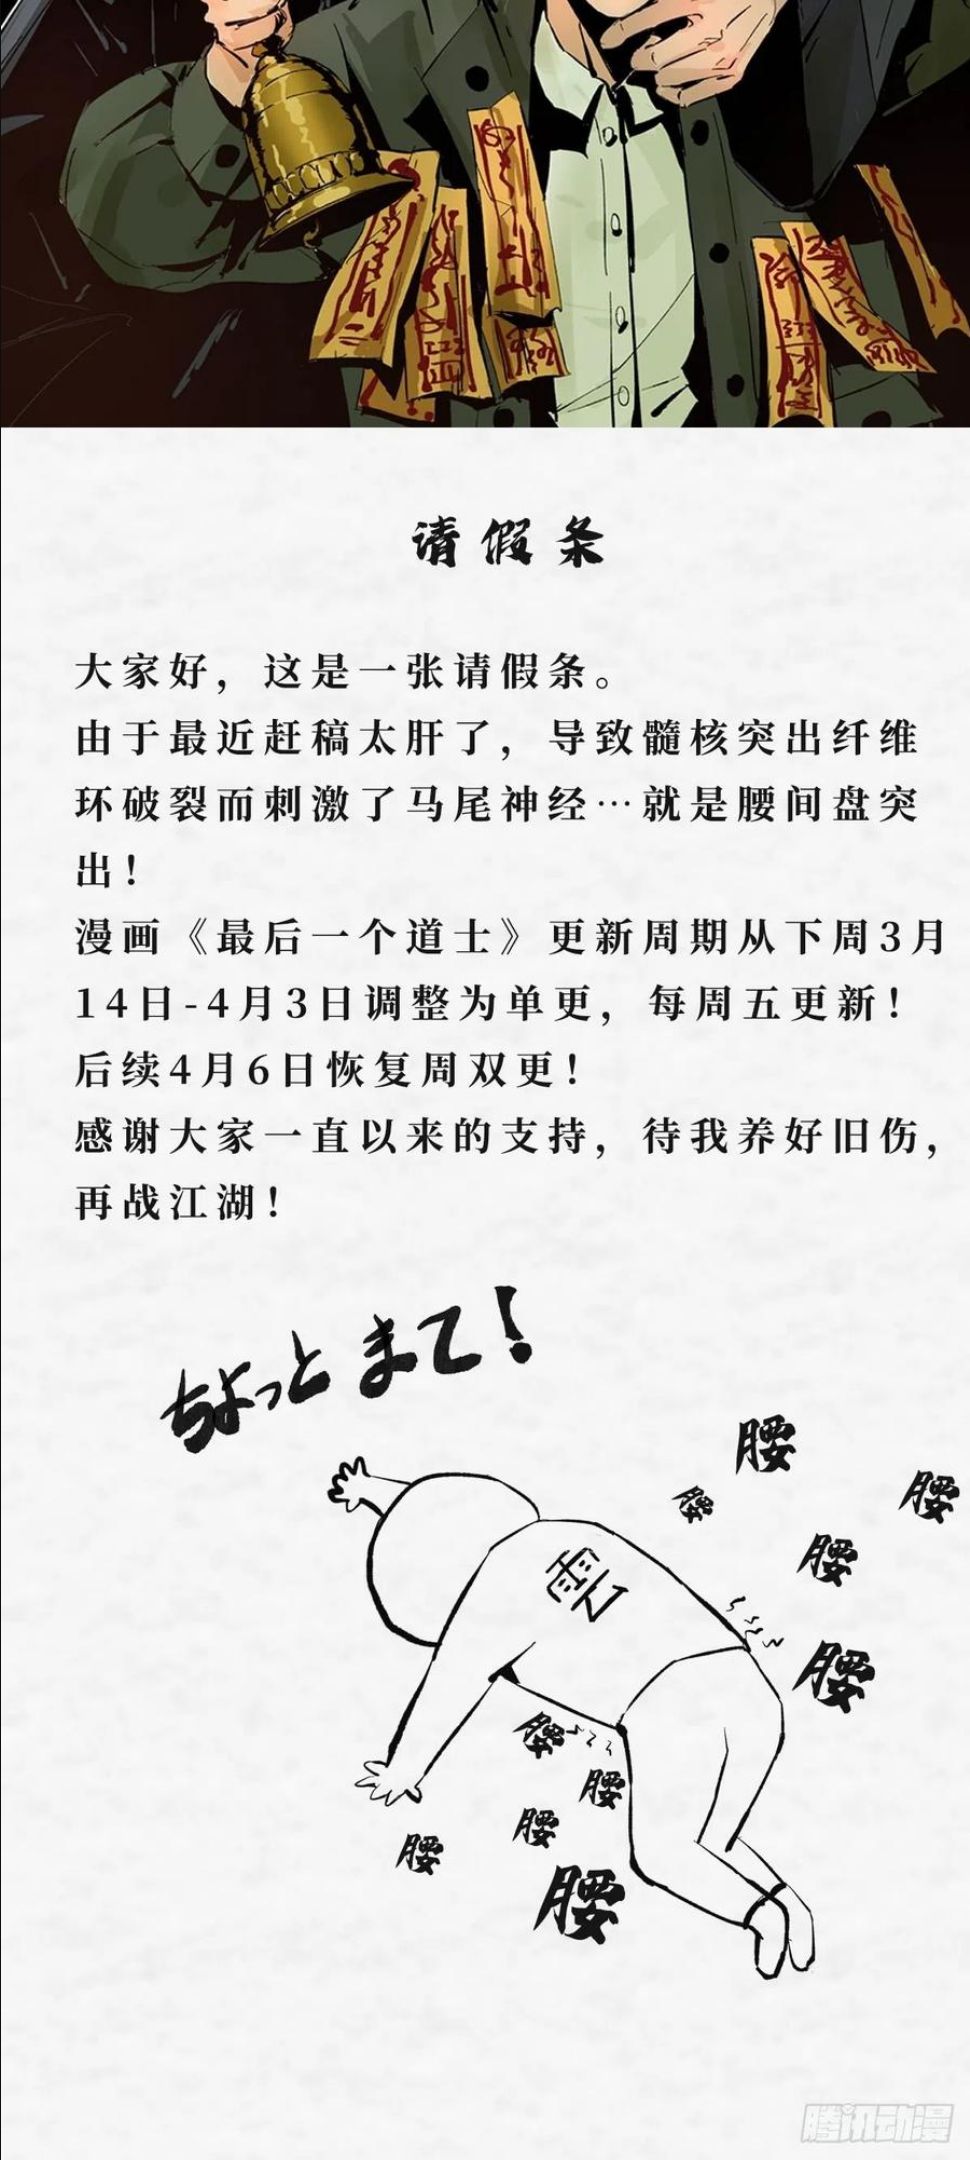 请假条
大家好，这是一张请假条。
由于最近赶稿太肝了，导致髓核突出纤维
环破裂而刺激了马尾神经…就是腰间盘突
出！
漫画《最后一个道士》更新周期从下周3月
14日-4月3日调整为单更，每周五更新！
后续4月6日恢复周双更！
感谢大家一直以来的支持，待我养好旧伤，
再战江湖！
ちょっとまて！
腰
腰
腰
腰
雲
腰
腰
腰
腰
腰
腰
腾讯动漫